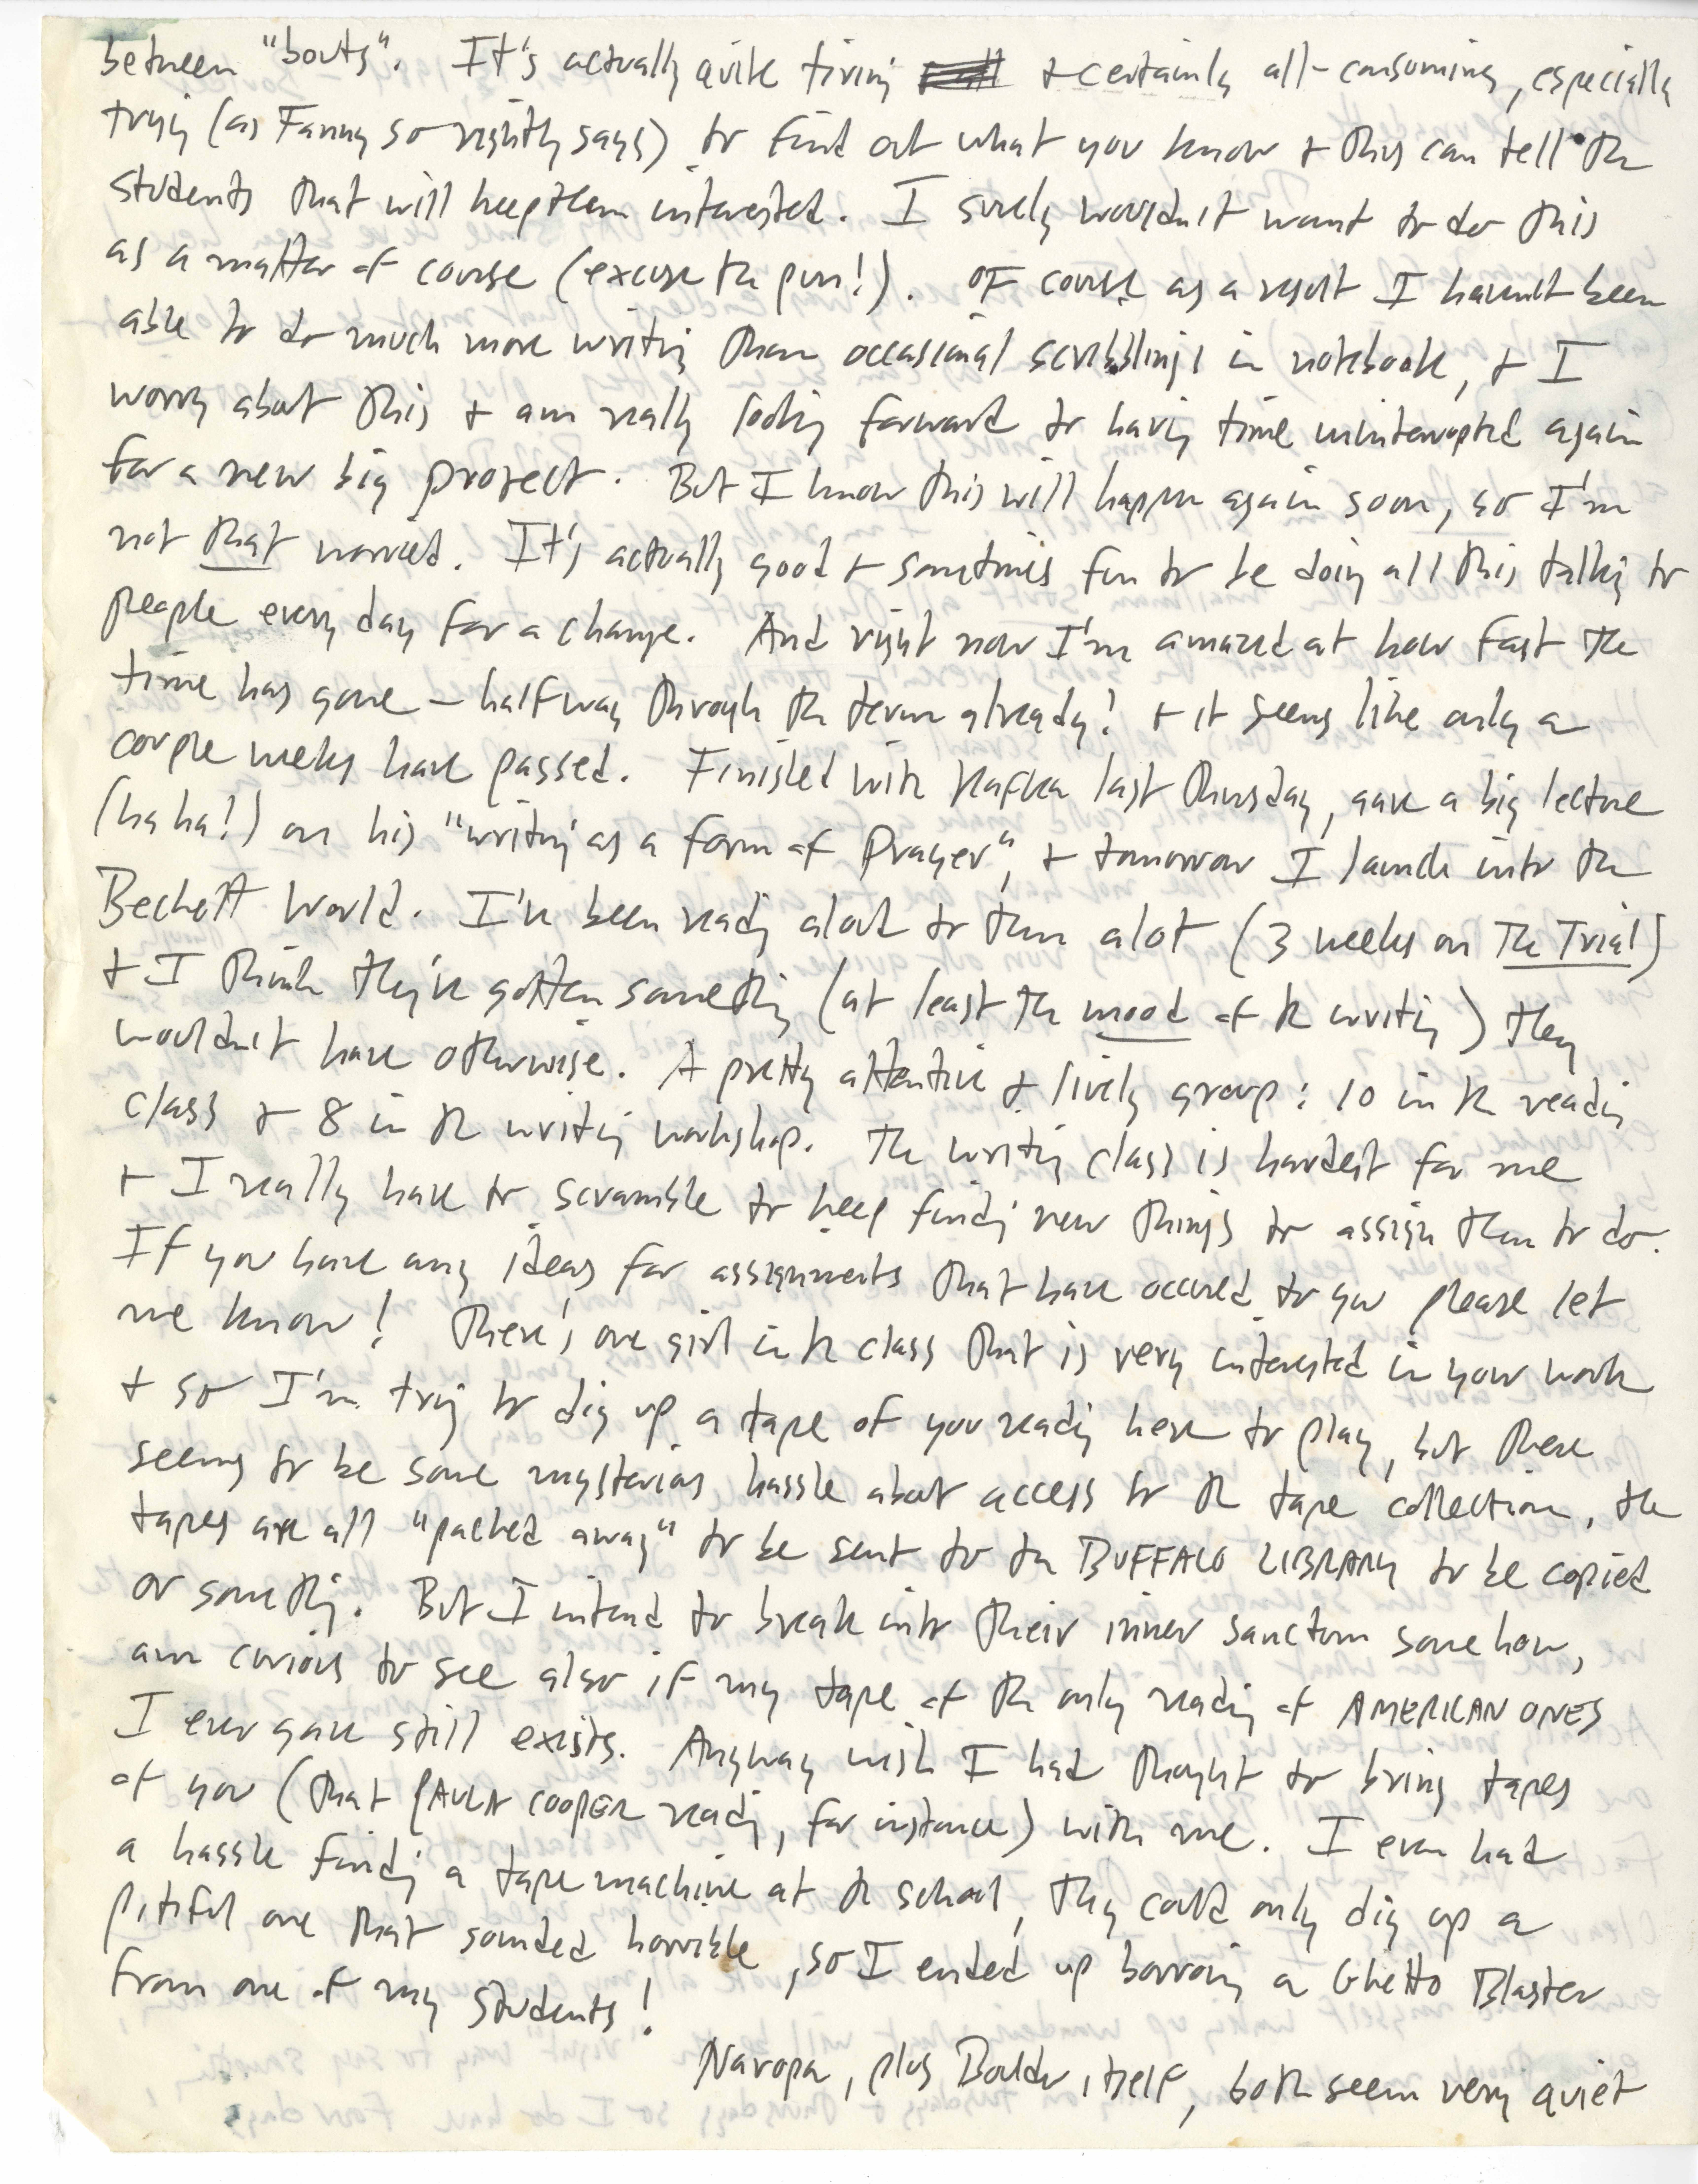 between "bouts". It's actually quite tiring & certainly all-consuming, especially
trying (as Fanny so rightly says) to find out what you know & thus can tell the
students that will keep them interested. I surely wouldn't want to do this
as a matter of course (excuse the pun!). Of course as a result I haven't been
able to do much more writing than occasional scribblings in notebook, & I
worry about this & am really looking forward to having time uninterrupted again
for a new big project. But I know this will happen again soon, so I'm
not that worried. It's actually good & sometimes fun to be doing all this talking to
people every day for a change. And right now I'm amazed at how fast the
time has gone – halfway through the term already! & it seems like only a
couple weeks have passed. Finished with Kafka last Thursday, gave a big lecture
(ha ha!) on his "writing as a form of Prayer", & tomorrow I launch into the
Beckett World. I've been reading aloud to them alot (3 weeks on The Trial)
& I think they've gotten something (at least the mood of the writing) they
wouldn't have otherwise. A pretty attentive & lively group: 10 in the reading
class & 8 in the writing workshop. The writing class is hardest for me
& I really have to scramble to keep finding new things to assign them to do.
If you have any ideas for assignments that have occured to you please let
me know! There's one girl in the class that is very interested in your work
& so I'm trying to dig up a tape of you reading here to play, but there
seems to be some mysterious hassle about access to the tape collection, the
tapes are all "packed away" to be sent to the BUFFALO LIBRARY to be copied
or something. But I intend to break into their inner sanctum somehow,
am curious to see also if my tape of the only reading of AMERICAN ONES
I ever gave still exists. Anyway wish I had thought to bring tapes
of you (that PAULA COOPER reading, for instance) with me. I even had
a hassle finding a tape machine at the school, they could only dig up a
pitiful one that sounded horrible, so I ended up borrowing a Ghetto Blaster
from one of my students!
Naropa, plus Boulder itself, both seem very quiet